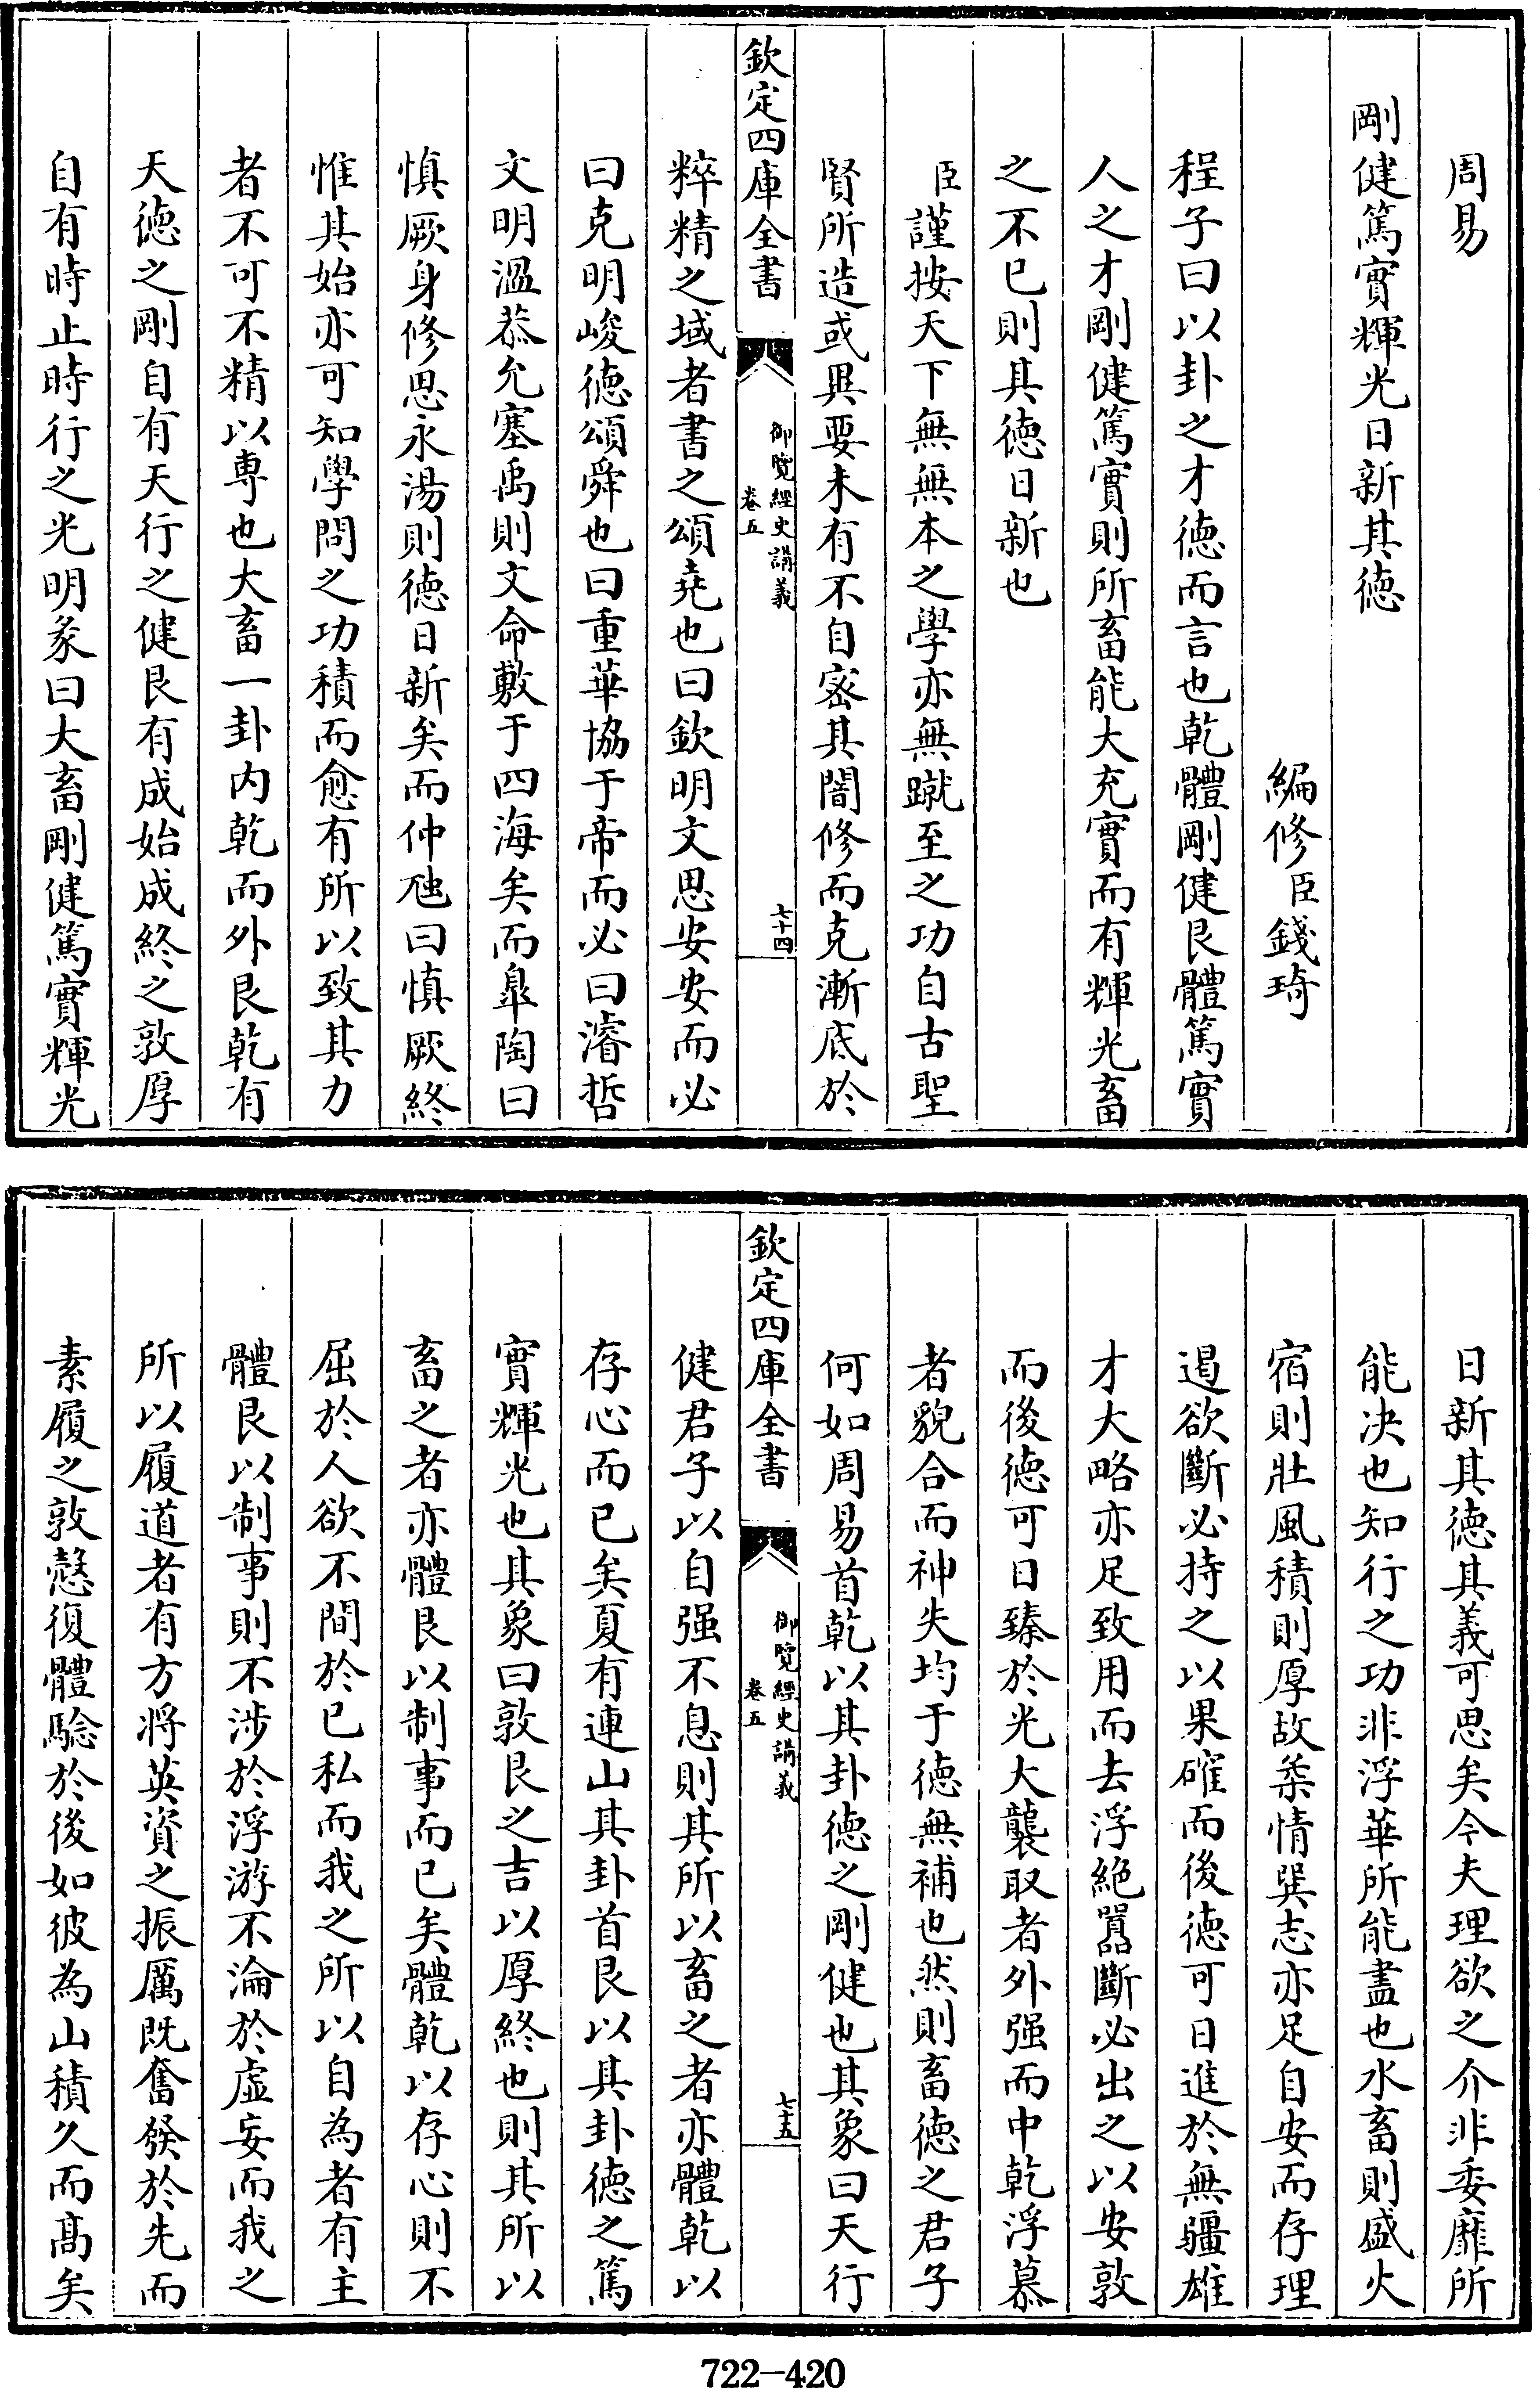 周易
剛健篤實輝光日新其德
編修臣錢琦
程子曰以卦之才德而言也乾體剛健艮體篤實
人之才剛健篤實則所畜能大充實而有輝光畜
之不已則其德日新也
臣謹按天下無無本之學亦無蹴至之功自古聖
賢所造或異要未有不自宻其闇修而克漸底於
欽定四庫全書
御覽經史講義
卷五
七十四
粹精之域者書之頌堯也曰欽明文思安安而必
曰克明峻德頌舜也曰重華協于帝而必曰濬哲
文明温恭允塞禹則文命敷于四海矣而臯陶曰
慎厥身修思永湯則德日新矣而仲虺曰慎厥終
惟其始亦可知學問之功積而愈有所以致其力
者不可不精以専也大畜一卦内乾而外艮乾有
天德之剛自有天行之健艮有成始成終之敦厚
自有時止時行之光明彖曰大畜剛健篤實輝光
日新其德其義可思矣今夫理欲之介非委靡所
能决也知行之功非浮華所能盡也水畜則盛火
宿則壯風積則厚故柔情巽志亦足自安而存理
遏欲斷必持之以果確而後德可日進於無疆雄
才大略亦足致用而去浮絶囂斷必出之以安敦
而後德可日臻於光大襲取者外强而中乾浮慕
者貌合而神失均于德無補也然則畜德之君子
何如周易首乾以其卦德之剛健也其象曰天行
欽定四庫全書
御覽經史講義
卷五
七十五
健君子以自强不息則其所以畜之者亦體乾以
存心而已矣夏有連山其卦首艮以其卦德之篤
實輝光也其象曰敦艮之吉以厚終也則其所以
畜之者亦體艮以制事而已矣體乾以存心則不
屈於人欲不間於已私而我之所以自為者有主
體艮以制事則不涉於浮游不淪於虛妄而我之
所以履道者有方將英資之振厲既奮發於先而
素履之敦慤復體騐於後如彼為山積久而髙矣
722-420